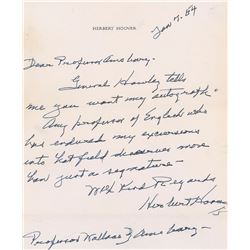 HERBERT HOOVER
Jan 7. 54
Dear Professor Armsbary:
General Hawley tells
me you want my "autograph"
Any professor of English who
has endured my excursions
into that field deserves more
than just a signature—
With Kind Regards
Herbert Hoover
Professor Wallace